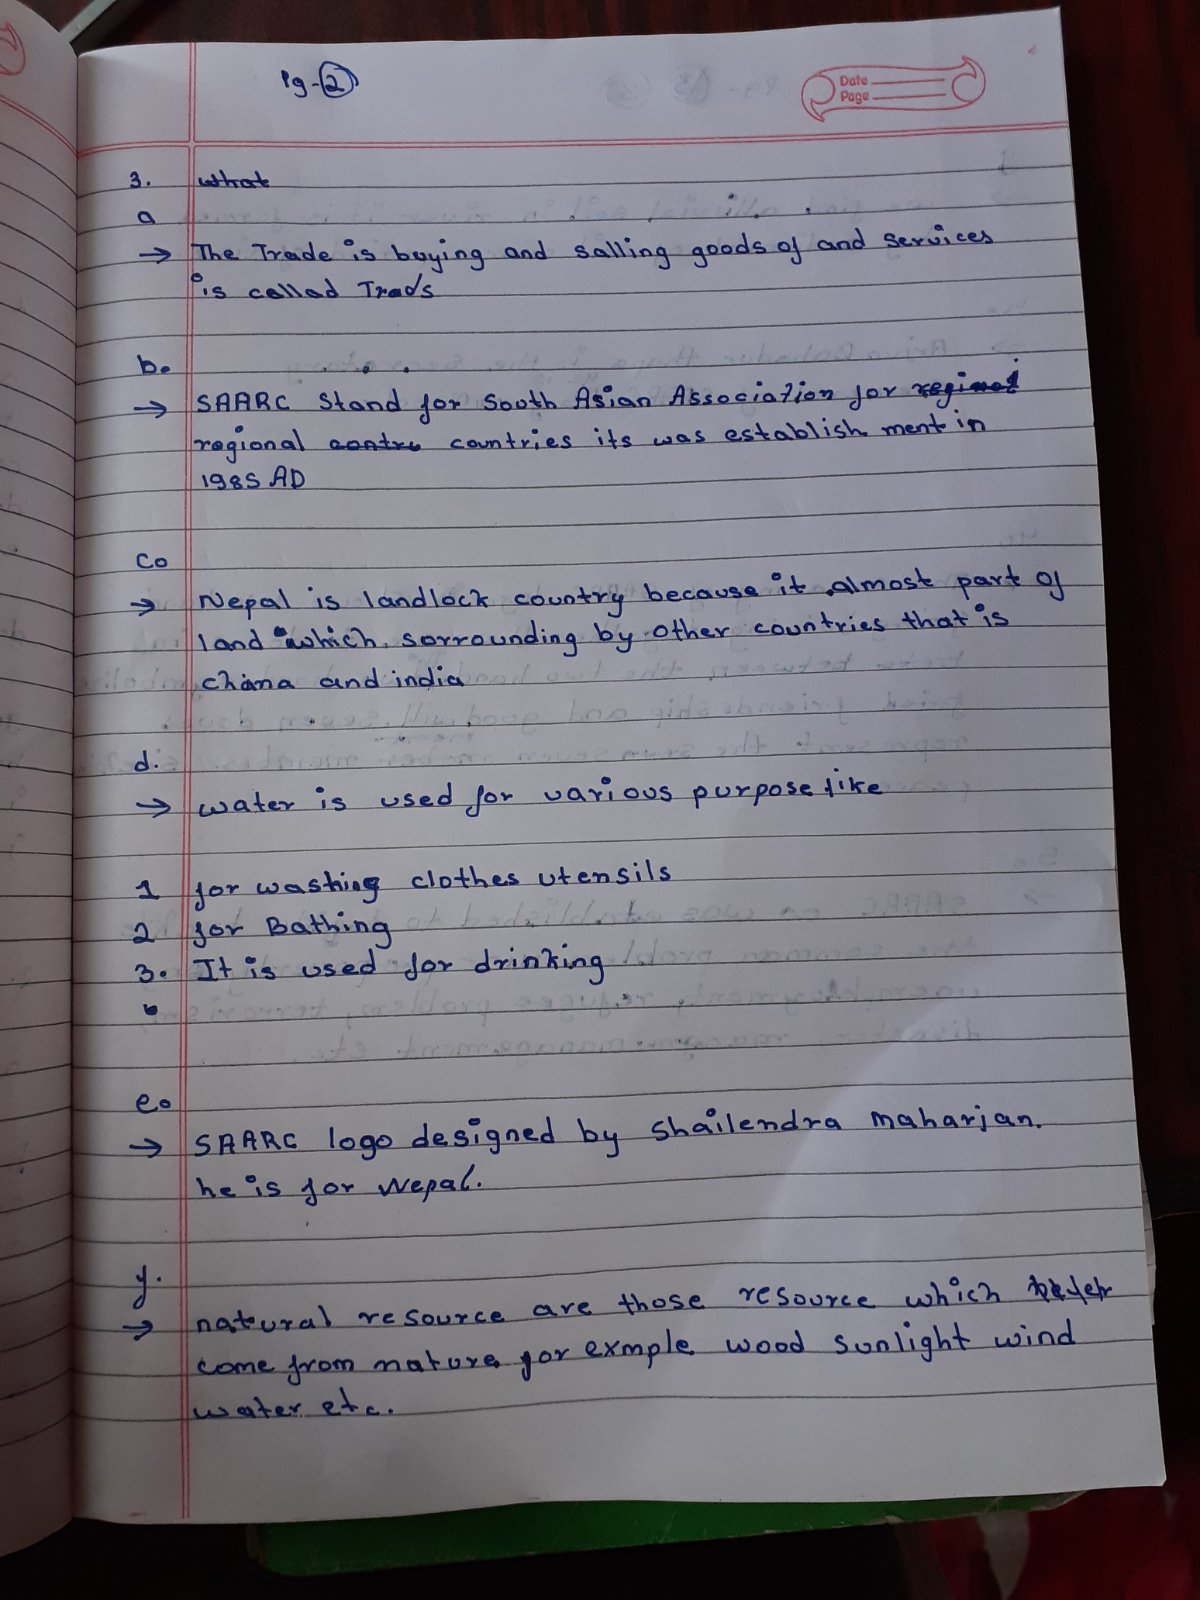 Pg-2
Date
Page
3. what
a
→ The Trade is buying and salling goods of and services
is called Trads
b.
→ SAARC Stand for South Asian Association for regional
regional contru countries its was establish ment in
1985 AD
c.
→ Nepal is landlock country because it almost part of
land which sorrounding by other countries that is
china and india
d.
→ water is used for various purpose like
1 for washing clothes utensils
2 for Bathing
3. It is used for drinking
e.
→ SAARC logo designed by Shailendra maharjan.
he is for Nepal.
f.
→ natural resource are those resource which
come from nature for exmple wood sunlight wind
water etc.